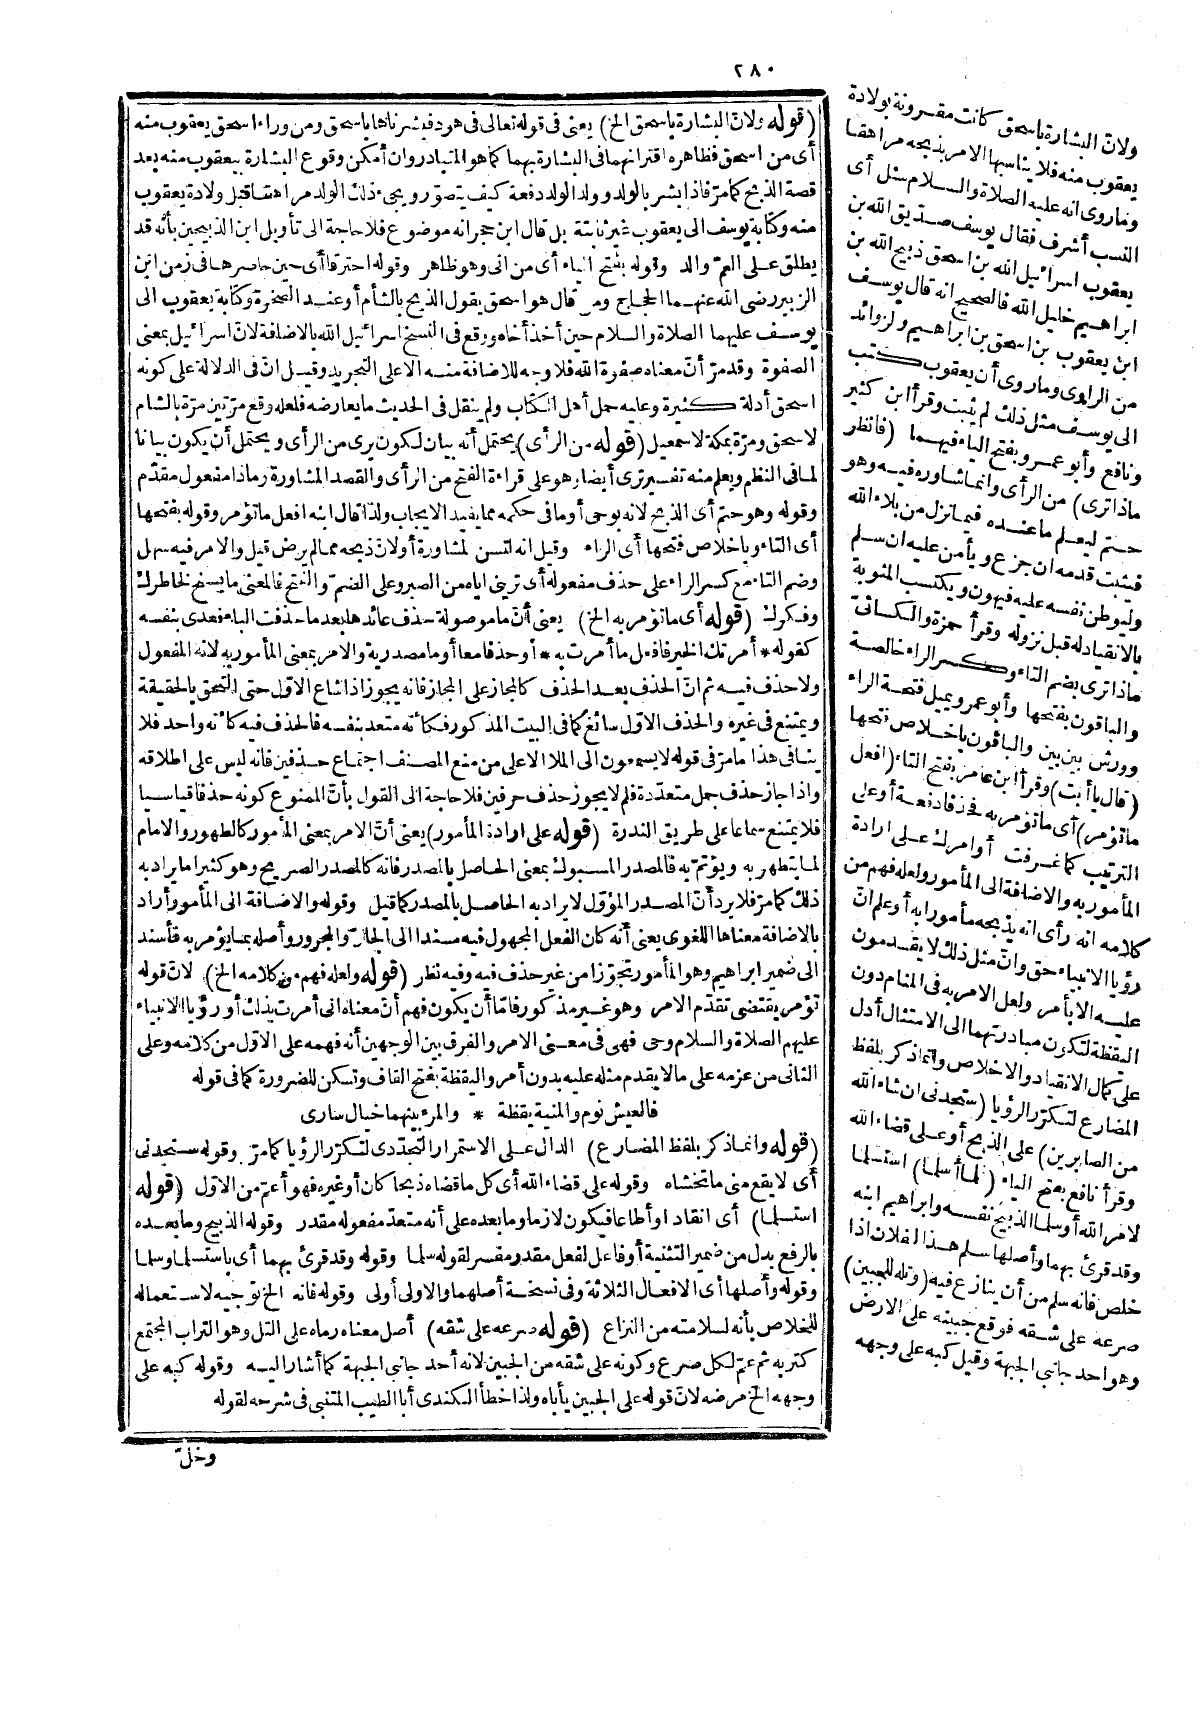 ٢٨٠
(قوله ولانّ البشارة باسحق الخ) يعنى فى قوله تعالى فى هود فبشرناها باسحق ومن وراء اسحق يعقوب منه
أى من اسحق فظاهره اقترانهما فى البشارة بهما كما هو المتبادر وان أمكن وقوع البشارة بيعقوب منه بعد
قصة الذبح كما مرّ فاذا بشر بالولد وولد الولد دفعة كيف يتصوّر ويجىء ذلك الولد مراهقا قبل ولادة يعقوب
منه وكتابة يوسف الى يعقوب غير ثابتة بل قال ابن حجر انه موضوع فلا حاجة الى تأويل ابن الذبيحين بأنه قد
يطلق على العمّ والد وقوله بفتح الياء أى من انى وهو ظاهر وقوله احترقا أى حين حاصرها فى زمن ابن
الزبير رضى الله عنهما الحجاج ومن قال هو اسحق يقول الذبح بالشأم أو عند الصخرة وكتابة يعقوب الى
يوسف عليهما الصلاة والسلام حين أخذ أخاه ووقع فى النسخ اسرائيل الله بالاضافة لانّ اسرائيل بمعنى
الصفوة وقد مرّ أنّ معناه صفوة الله فلا وجه للاضافة منه الاعلى التجريد وقيل انّ فى الدلالة على كونه
اسحق أدلة كثيرة وعليه حمل أهل الكتاب ولم ينقل فى الحديث ما يعارضه فلعله وقع مرّتين مرّة بالشام
لاسحق ومرّة بمكة لاسمعيل (قوله من الرأى) يحتمل أنه بيان لكون يرى من الرأى ويحتمل أن يكون بيانا
لما فى النظم ويعلم منه تفسير ترى أيضا وهو على قراءة الفتح من الرأى والقصد المشاورة وماذا مفعول مقدّم
وقوله وهو حتم أى الذبح لانه بوحى أو ما فى حكمه مما يفيد الايجاب ولذا قال ابنه افعل ما تؤمر وقوله بفتحها
أى التاء وباخلاص فتحها أى الراء وقيل انه ليس لمشاورة أولانّ ذبحه مما لم يرض قيل والامر فيه سهل
وضم التاء مع كسر الراء على حذف مفعوله أى ترينى اياه من الصبر وعلى الضمّ والفتح فالمعنى ما يسنح لخاطرك
وفكرك (قوله أى ما تؤمر به الخ) يعنى أنّ ما موصولة حذف عائدها بعد ما حذفت الباء فعدى بنفسه
كقوله * أمرتك الخير فافعل ما أمرت به * أو حذفا معا أو ما مصدرية والامر بمعنى المأمور به لانه المفعول
ولا حذف فيه ثم انّ الحذف بعد الحذف كالمجاز على المجاز فانه يجوز اذا شاع الاول حتى التحق بالحقيقة
ويمتنع فى غيره والحذف الاول سائغ كما فى البيت المذكور فكأنه متعد بنفسه فالحذف فيه كأنه واحد فلا
ينافى هذا ما مرّ فى قوله لا يسمعون الى الملا الاعلى من منع المصنف اجتماع حذفين فانه ليس على اطلاقه
واذا جاز حذف جمل متعدّدة فلم لا يجوز حذف حرفين فلا حاجة الى القول بأنّ الممنوع كونه حذفا قياسيا
فلا يمتنع سماعا على طريق الندرة (قوله على ارادة المأمور) يعنى أنّ الامر بمعنى المأمور كالطهور والامام
لما يتطهر به ويؤتمّ به فالمصدر المسبوك بمعنى الحاصل بالمصدر فانه كالمصدر الصريح وهو كثيرا ما يراد به
ذلك كما مرّ فلا يرد أنّ المصدر المؤوّل لا يراد به الحاصل بالمصدر كما قيل وقوله والاضافة الى المأمور أراد
بالاضافة معناها اللغوى يعنى أنه كان الفعل المجهول فيه مسندا الى الجارّ والمجرور وأصله بما يؤمر به فأسند
الى ضمير ابراهيم وهو المأمور تجوّزا من غير حذف فيه وفيه نظر (قوله ولعله فهم من كلامه الخ) لانّ قوله
تؤمر يقتضى تقدّم الامر وهو غير مذكور فامّا أن يكون فهم أنّ معناه انى أمرت بذلك أو رؤيا الانبياء
عليهم الصلاة والسلام وحى فهى فى معنى الامر والفرق بين الوجهين أنه فهمه على الاوّل من كلامه وعلى
الثانى من عزمه على ما لا يقدم مثله عليه بدون أمر واليقظة بفتح القاف وتسكن للضرورة كما فى قوله
فالعيش نوم والمنية يقظة * والمرء بينهما خيال سارى
(قوله وانما ذكر بلفظ المضارع) الدال على الاستمرار التجدّدى لتكرّر الرؤيا كما مرّ وقوله ستجدنى
أى لا يقع منى ما تخشاه وقوله على قضاء الله أى كل ما قضاه ذبحا كان أو غيره فهو أعمّ من الاوّل (قوله
استسلما) أى انقادا وأطاعا فيكون لازما وما بعده على أنه متعدّ مفعوله مقدر وقوله الذبيح وما بعده
بالرفع بدل من ضمير التثنية أو فاعل لفعل مقدر ومفسر لقوله سلما وقوله وقد قرئ بهما أى باستسلما وسلما
وقوله وأصلها أى الافعال الثلاثة وفى نسخة أصلهما والاولى أولى وقوله فانه الخ توجيه لاستعماله
للخلاص بأنه لسلامته من النزاع (قوله صرعه على شقه) أصل معناه رماه على التل وهو التراب المجتمع
كتربه ثم عمّ لكل صرع وكونه على شقه من الجبين لانه أحد جانبى الجبهة كما أشار اليه وقوله كبه على
وجهه الخ مرضه لانّ قوله على الجبين يأباه ولذا خطأ الكندى أبا الطيب المتنبى فى شرحه لقوله
وخلّ
ولانّ البشارة باسحق كانت مقرونة بولادة
يعقوب منه فلا يناسبها الامر بذبحه مراهقا
وما روى انه عليه الصلاة والسلام سئل أى
النسب أشرف فقال يوسف صديق الله بن
يعقوب اسرائيل الله بن اسحق ذبيح الله بن
ابراهيم خليل الله فالصحيح انه قال يوسف
ابن يعقوب بن اسحق بن ابراهيم والزوائد
من الراوى وما روى أن يعقوب كتب
الى يوسف مثل ذلك لم يثبت وقرأ ابن كثير
ونافع وأبو عمرو بفتح الياء فيهما (فانظر
ماذا ترى) من الرأى وانما شاوره فيه وهو
حتم ليعلم ما عنده فيما نزل من بلاء الله
فيثبت قدمه ان جزع ويأمن عليه ان سلم
وليوطن نفسه عليه فيهون ويكتسب المثوبة
بالانقياد له قبل نزوله وقرأ حمزة والكسائىّ
ماذا ترى بضم التاء وكسر الراء خالصة
والباقون بفتحها وأبو عمرو يميل فتحة الراء
وورش بين بين والباقون باخلاص فتحها
(قال يا أبت) وقرأ ابن عامر بفتح التاء (افعل
ما تؤمر) أى ما تؤمر به فحذفا دفعة أو على
الترتيب كما عرفت أو امرك على ارادة
المأمور به والاضافة الى المأمور ولعله فهم من
كلامه انه رأى انه يذبحه مأمورا به أو علم انّ
رؤيا الانبياء حق وانّ مثل ذلك لا يقدمون
عليه الا بأمر ولعل الامر به فى المنام دون
اليقظة لتكون مبادرتهما الى الامتثال أدل
على كمال الانقياد والاخلاص وانما ذكر بلفظ
المضارع لتكرّر الرؤيا (ستجدنى ان شاء الله
من الصابرين) على الذبح أو على قضاء الله
وقرأ نافع بفتح الياء (فلما أسلما) استسلما
لامر الله أو سلما الذبيح نفسه وابراهيم ابنه
وقد قرئ بهما وأصلها سلم هذا لفلان اذا
خلص فانه سلم من أن ينازع فيه (وتله للجبين)
صرعه على شقه فوقع جبينه على الارض
وهو احد جانبى الجبهة وقيل كبه على وجهه